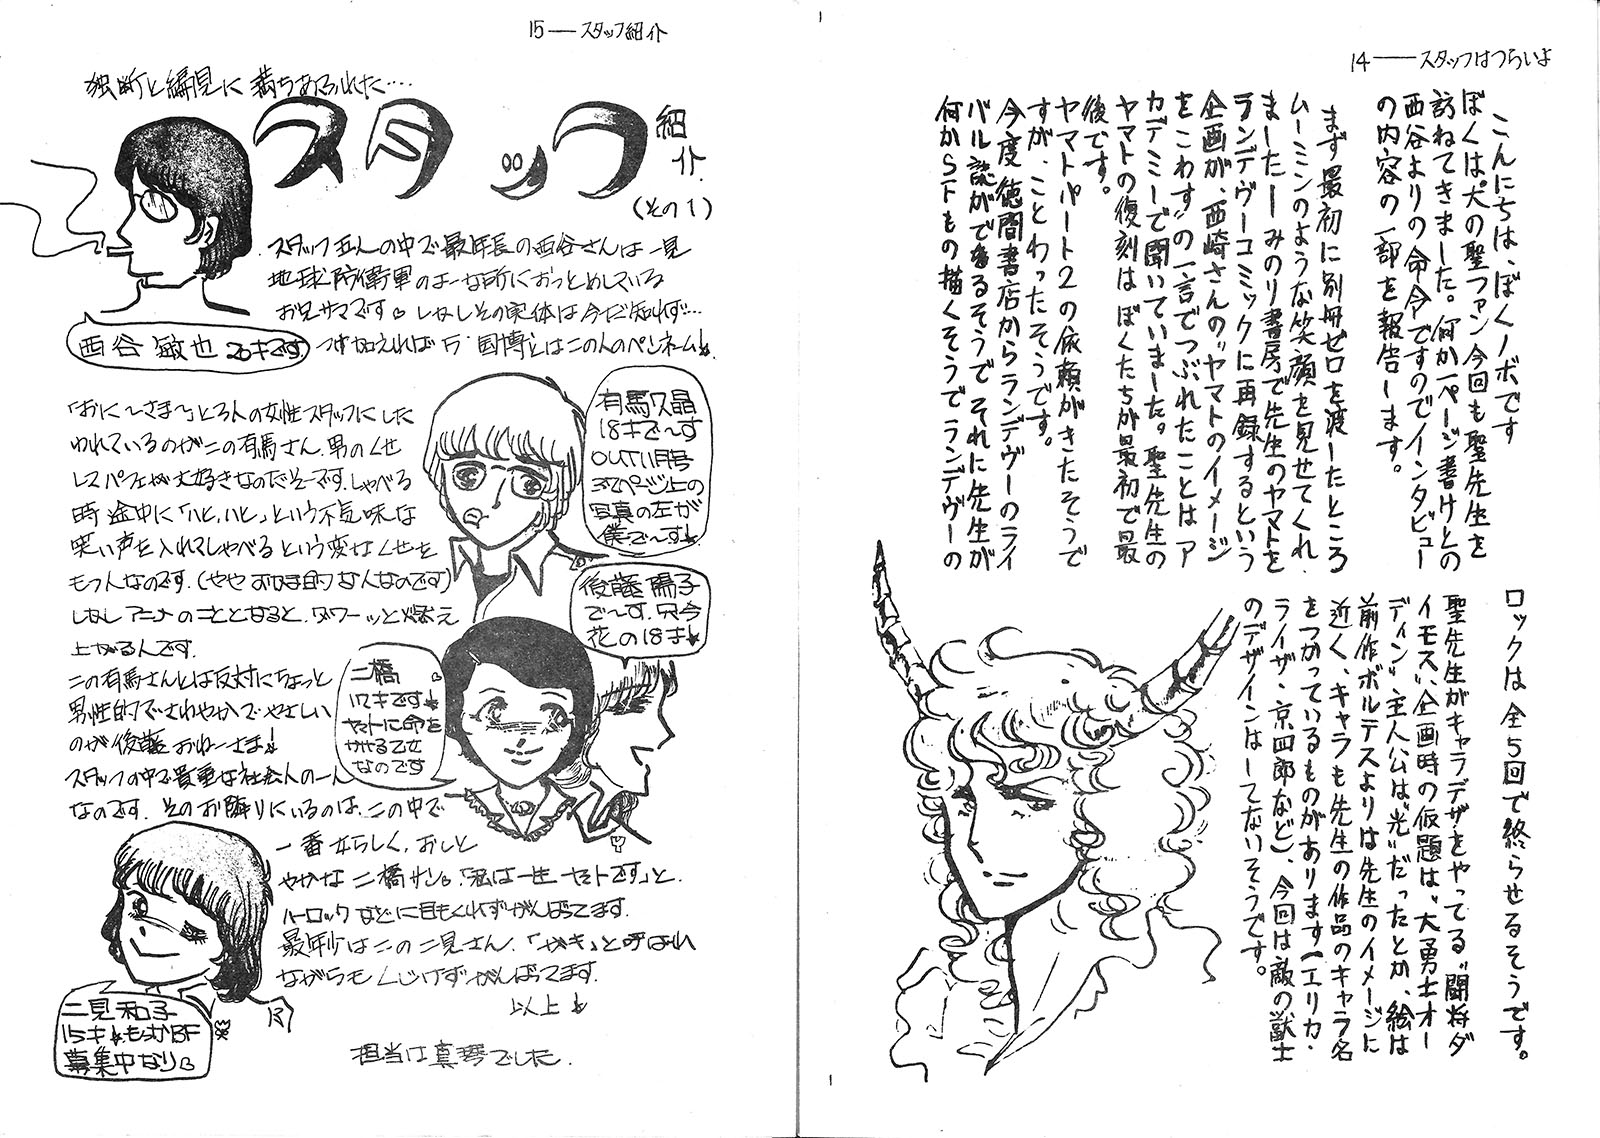 14──スタッフはつらいよ
こんにちは、ぼくノボです
ぼくは犬の聖ファン今回も聖先生を
訪ねてきました。何か一ページ書けとの
西谷よりの命令ですのでインタビュー
の内容の一部を報告します。
まず最初に別冊ゼロを渡したところ
ムーミンのような笑顔を見せてくれ、
ました─みのり書房で先生のヤマトを
ランデヴーコミックに再録するという
企画が、西崎さんの“ヤマトのイメージ
をこわす”の一言でつぶれたことはア
カデミーで聞いていました。聖先生の
ヤマトの復刻はぼくたちが最初で最
後です。
ヤマトパート2の依頼がきたそうで
すが、ことわったそうです。
今度徳間書店からランデヴーのライ
バル誌がでるそうでそれに先生が
何かSFもの描くそうでランデヴーの
ロックは全5回で終らせるそうです。
聖先生がキャラデザをやってる“闘将ダ
イモス”、企画時の仮題は、“大勇士オー
ディン”主人公は“光”だったとか、絵は
前作ボルテスよりは先生のイメージに
近く、キャラも先生の作品のキャラ名
をつかっているものがあります(エリカ・
ライザ・京四郎など)、今回は敵の獣士
のデザインはしてないそうです。
15──スタッフ紹介
独断と編見に満ちあふれた‥‥
スタッフ
紹介
(その1)
スタッフ五人の中で最年長の西谷さんは一見
地球防衛軍のよーな所におつとめしている
お兄サマです。しかしその実体は今だ知れず…
つけ加えれば 万・国博とはこの人のペンネーム!
西谷 敏也 20才です
「おに〜さま〜」と3人の女性スタッフにした
われているのがこの有馬さん。男のくせ
してパフェが大好きなのだそーです。しゃべる
時途中に「ハヒ、ハヒ」という不気味な
笑い声を入れてしゃべるという変なくせを
もつ人なのです。(ややおかま的な人なのです)
しかしアニメのこととなると、ダワーッと燃え
上がるんです。
有馬久晶
18才で〜す
OUT11月号
37ページ上の
写真の左が
僕で〜す!
後藤陽子
で〜す。只今
花の18才
この有馬さんとは反対にちょっと
男性的でさわやかでやさしい
のが後藤おねーさま!
スタッフの中で貴重な社会人の一人
なのです。そのお隣りにいるのは、この中で
一番女らしく、おしと
やかな 二橋サン。「私は一生ヤマトです」と、
ハーロックなどには目もくれずがんばってます。
最年少はこの二見さん。「ガキ」と呼ばれ
ながらもくじけずがんばってます。
以上
二橋
17才です
ヤマトに命を
かける乙女
なのです
二見和子
15才。もっかBF
募集中なり
担当は真琴でした。